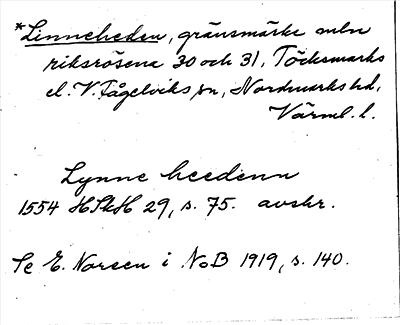 *Linneheden, gränsmärke mellan
riksrösena 30 och 31, Töcksmarks
el. V. Fågelviks sn, Nordmarks hd,
Värml. l.
Lynne heedenn
1554 HSkH 29, s. 75. avskr.
Se E. Noreen i NoB 1919, s. 140.